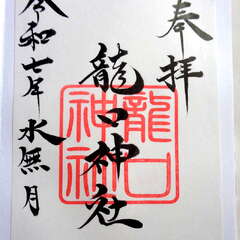 奉拝
龍口神社
龍口
神社
令和七年 水無月